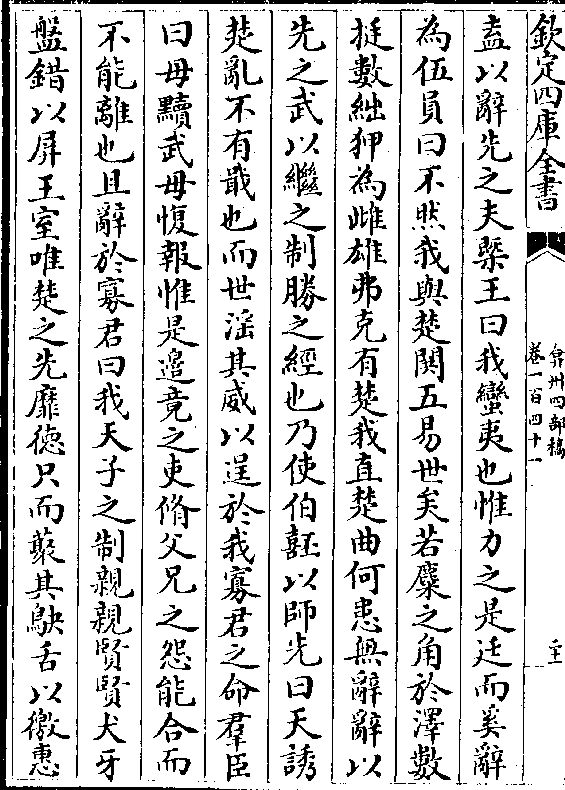 欽定四庫全書
弇州四部稿
卷一百四十一
盍以辭先之夫槩王曰我蠻夷也惟力之是廷而奚辭
為伍員曰不然我與楚鬨五易世矣若麋之角於澤數
挺數絀狎為雌雄弗克有楚我直楚曲何患無辭辭以
先之武以繼之制勝之經也乃使伯嚭以師先曰天誘
楚亂不有戢也而世滛其威以逞於我寡君之命羣臣
曰毋黷武毋愎報惟是邉竟之吏脩父兄之怨能合而
不能離也且辭於寡君曰我天子之制親親賢賢犬牙
盤錯以屏王室唯楚之先靡徳只而蔽其鴃舌以徼惠